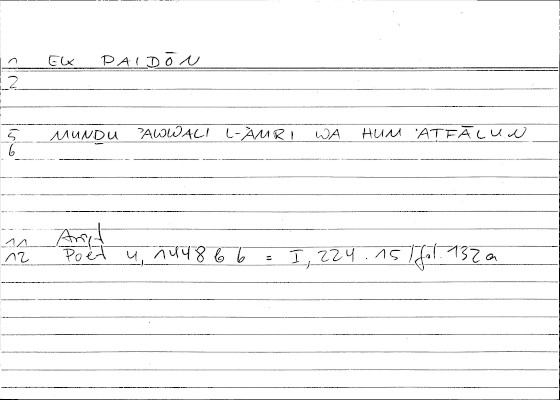 1 EK PAIDŌN
2
5 MUNḎU ʾAWWALI L-ʾAMRI WA HUM ʾAṬFĀLUN
6
11 Arist
12 Poet 4, 1448 b 6 = I, 224.15 / fol. 132a